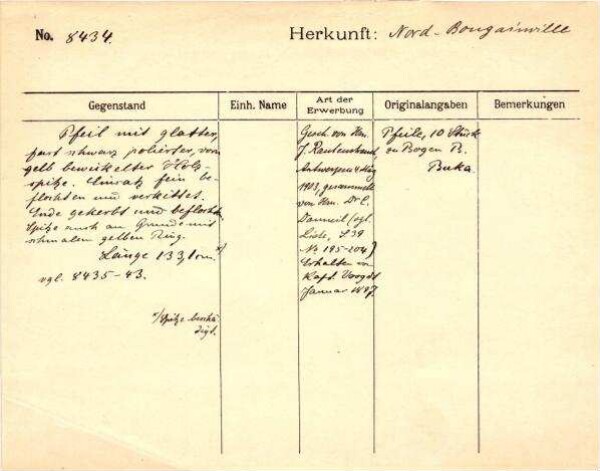 No. 8434.
Herkunft: Nord-Bougainville
Gegenstand
Einh. Name
Art der Erwerbung
Originalangaben
Bemerkungen
Pfeil mit glatter,
fast schwarz polierter, vorn
gelb bewickelter Holz-
spitze. Einsatz fein be-
flochten und verkittet.
Ende gekerbt und beflochten.
Spitze auch am Grunde mit
schmalem gelben Ring.
Länge 133,1 cm. x)
vgl. 8435-43.
x/ Spitze beschä-
digt.
Gesch. von Hrn.
J. Rautenstrauch,
Antwerpen
1903, gesammelt
von Hrn. Dr. C.
Danneil (vgl.
Liste, S 39
No 195-204)
Erhalten von
Kapt. Voogdt
Januar 1897.
Pfeile, 10 Stück
zu Bogen R.
Buka.